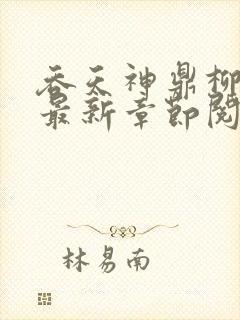 吞天神鼎柳
最新章节阅
林易南